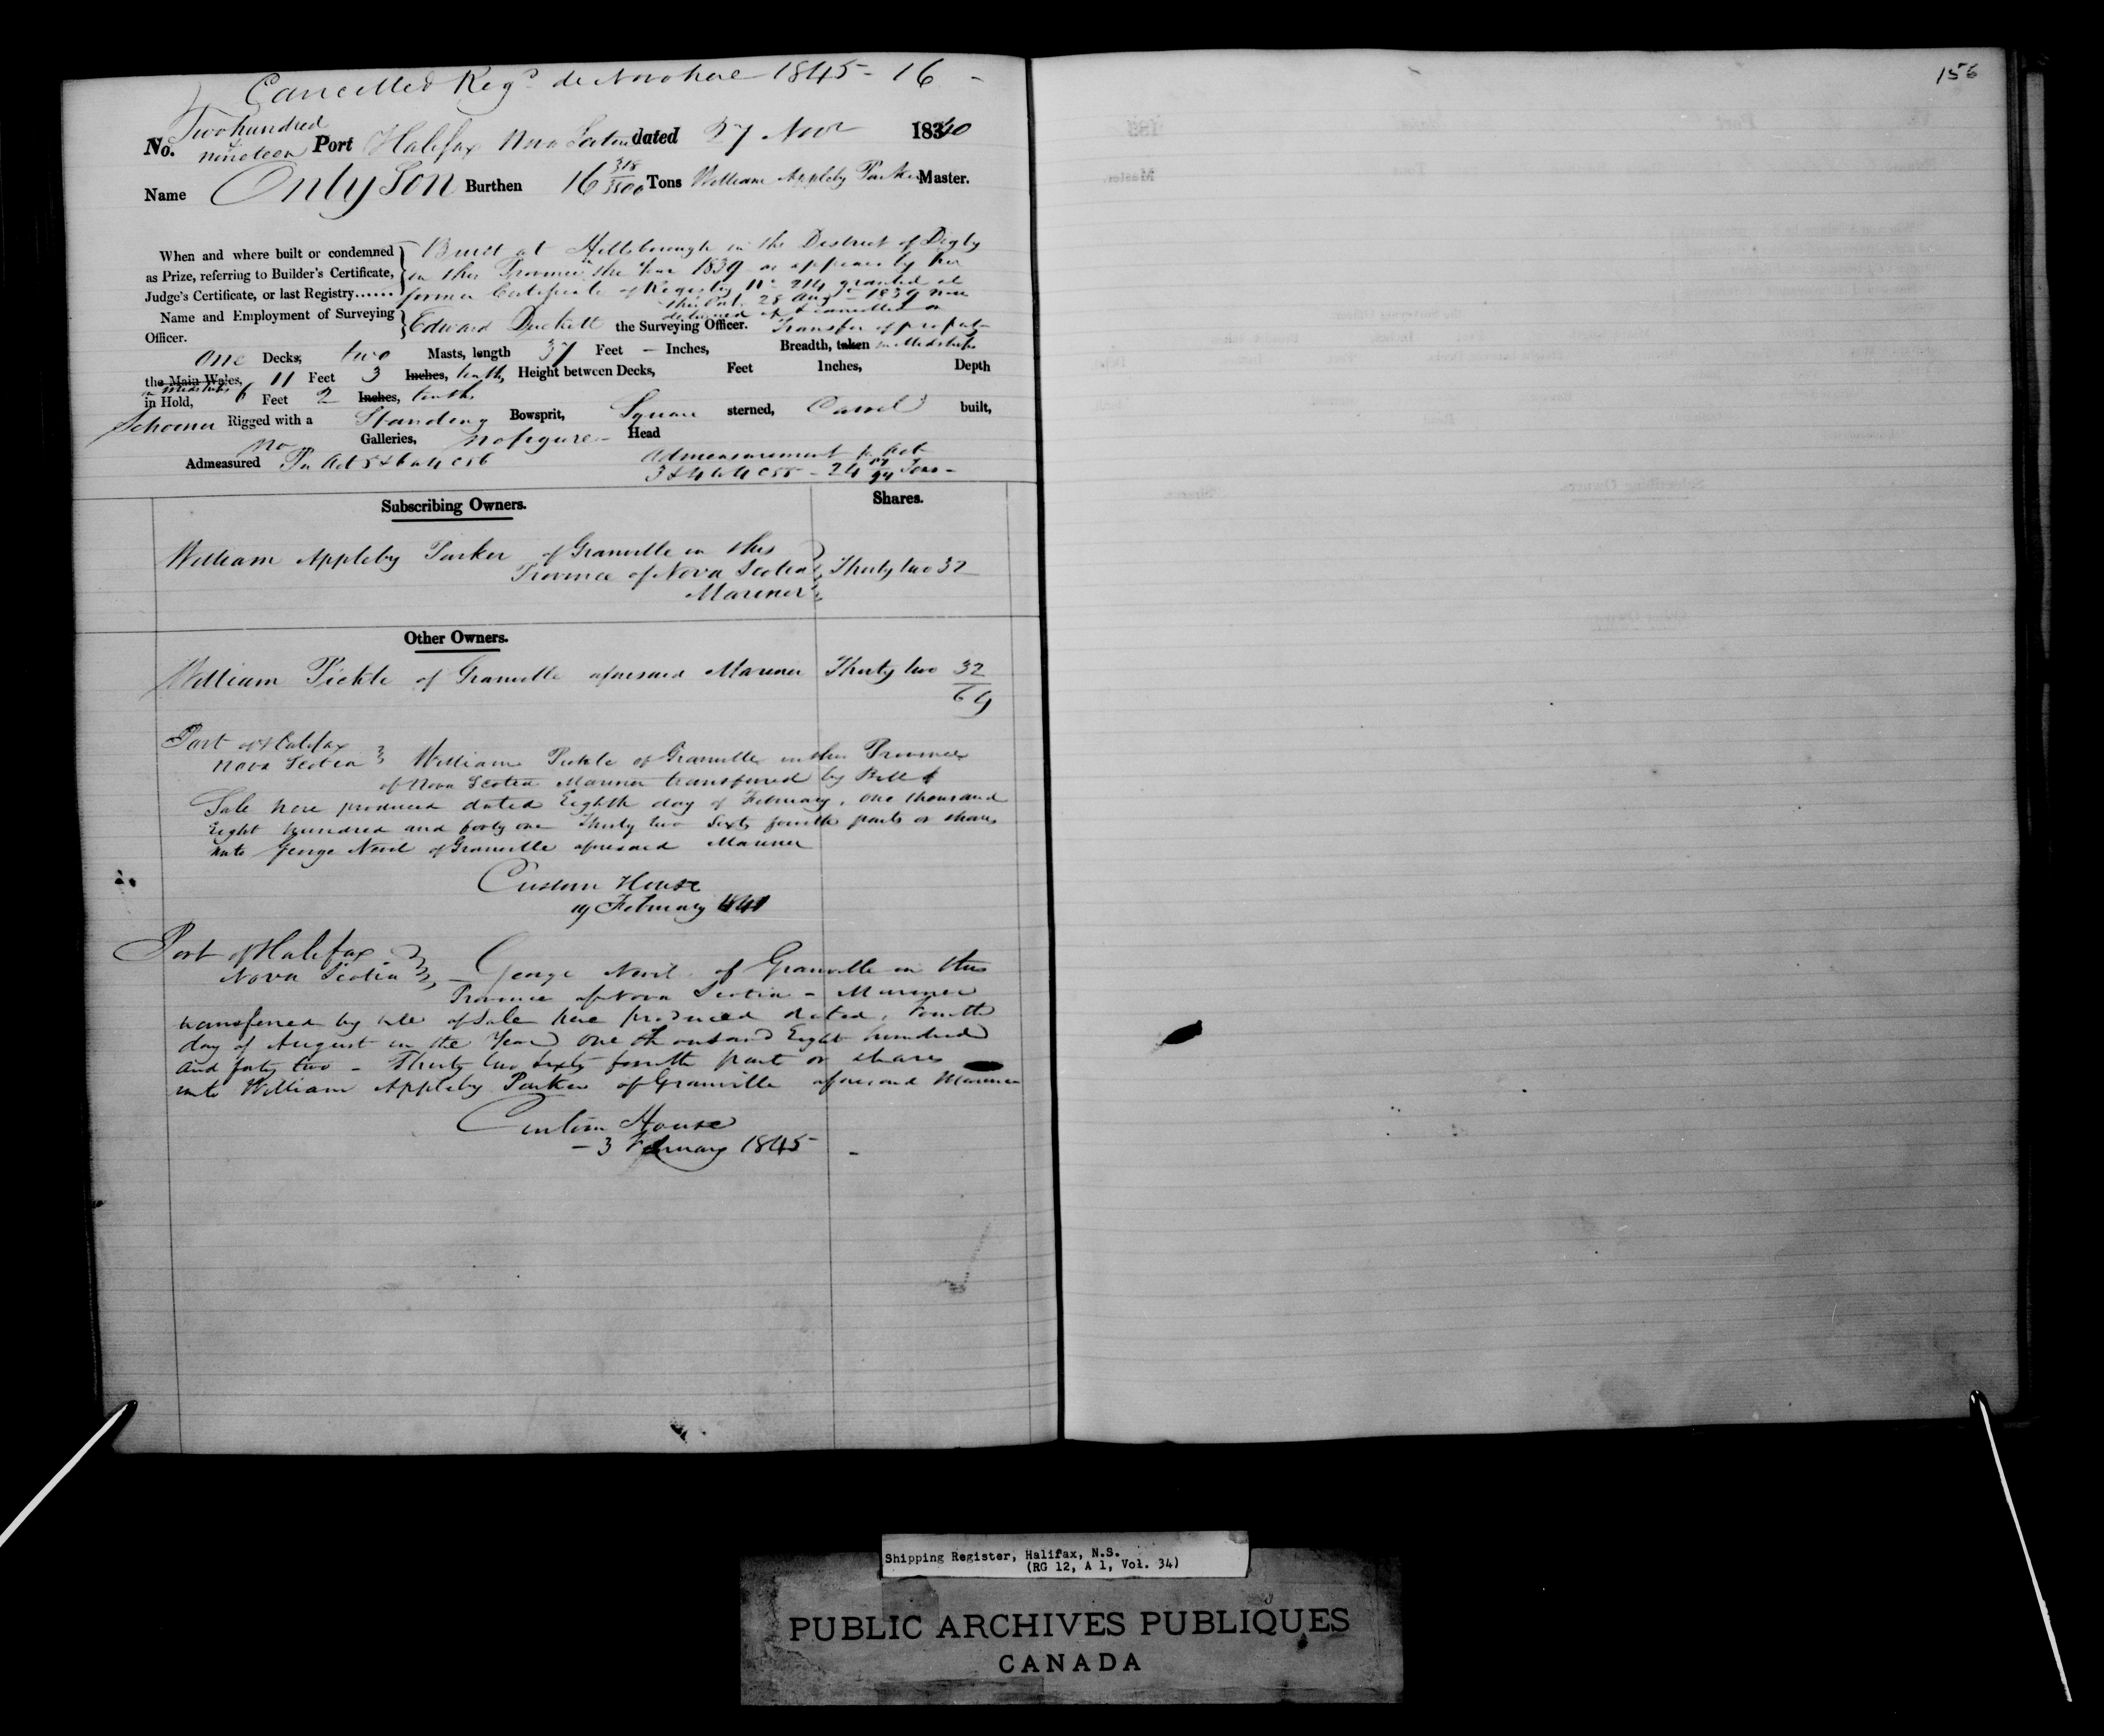 Cancelled Regd de Novo here 1845 - 16 -
156
No. Two hundred nineteen Port Halifax Nova Scotia dated 27 Nov 1840
Name Only Son Burthen 16 318/3500 Tons William Appleby Parker Master.
When and where built or condemned
as Prize, referring to Builder's Certificate,
Judge's Certificate, or last Registry......
Built at Hillsborough in the District of Digby
in this Province in the Year 1839 as appears by her
former Certificate of Registry No 214 granted at
this Port 28 Augt 1839 now
delivered up & cancelled on
Transfer of propt
Name and Employment of Surveying
Officer.
Edward Duckett the Surveying Officer.
One Decks, two Masts, length 37 Feet — Inches, Breadth, taken in Midships
the Main Wales, 11 Feet 3 Inches, tenths Height between Decks, Feet Inches, Depth
in Midships
in Hold, 6 Feet 2 Inches, tenths
Schooner Rigged with a Standing Bowsprit, Square sterned, Carvel built,
no Galleries, no figure - Head
Admeasured Pr Act 5 & 6 W 4 C 56
Admeasurement pr Act
3 & 4 W 4 C 55 - 24 /94 Tons -
Subscribing Owners.
Shares.
William Appleby Parker of Granville in this
Province of Nova Scotia
Mariner
Thirty two 32
Other Owners.
William Pickle of Granville aforesaid Mariner Thirty two 32
64
Port of Halifax
Nova Scotia William Pickle of Granville in the Province
of Nova Scotia Mariner transferred by Bill of
Sale here produced dated Eighth day of February, One thousand
Eight hundred and forty one Thirty two Sixty fourth parts or shares
unto George Nevil of Granville aforesaid Mariner
Custom House
19 February 1841
Port of Halifax
Nova Scotia - George Nevil of Granville in this
Province of Nova Scotia - Mariner
transferred by bill of Sale here produced dated, Fourth
day of August in the Year One thousand Eight hundred
and forty two - Thirty two Sixty fourth part or shares
unto William Appleby Parker of Granville aforesaid Mariner
Custom House
- 3 February 1845 -
Shipping Register, Halifax, N.S.
(RG 12, A 1, Vol. 34)
PUBLIC ARCHIVES PUBLIQUES
CANADA